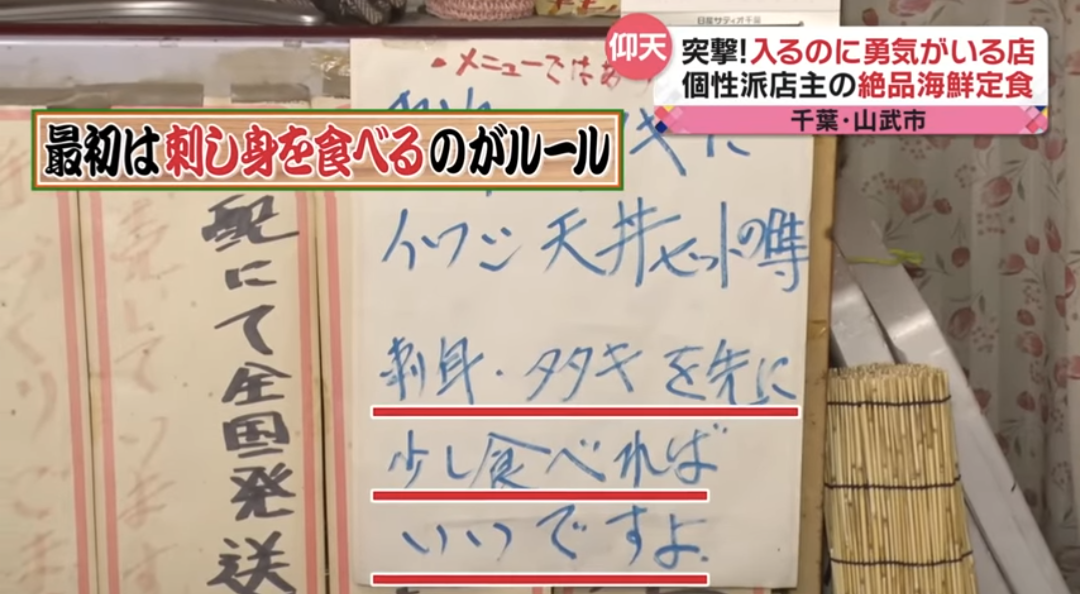 日産サティオ千葉
仰天
突撃!入るのに勇気がいる店
個性派店主の絶品海鮮定食
千葉・山武市
最初は刺し身を食べるのがルール
・メニューではあ
イワシ天丼セットの時
刺身・タタキを先に
少し食べれば
いいですよ.
配にて全国発送